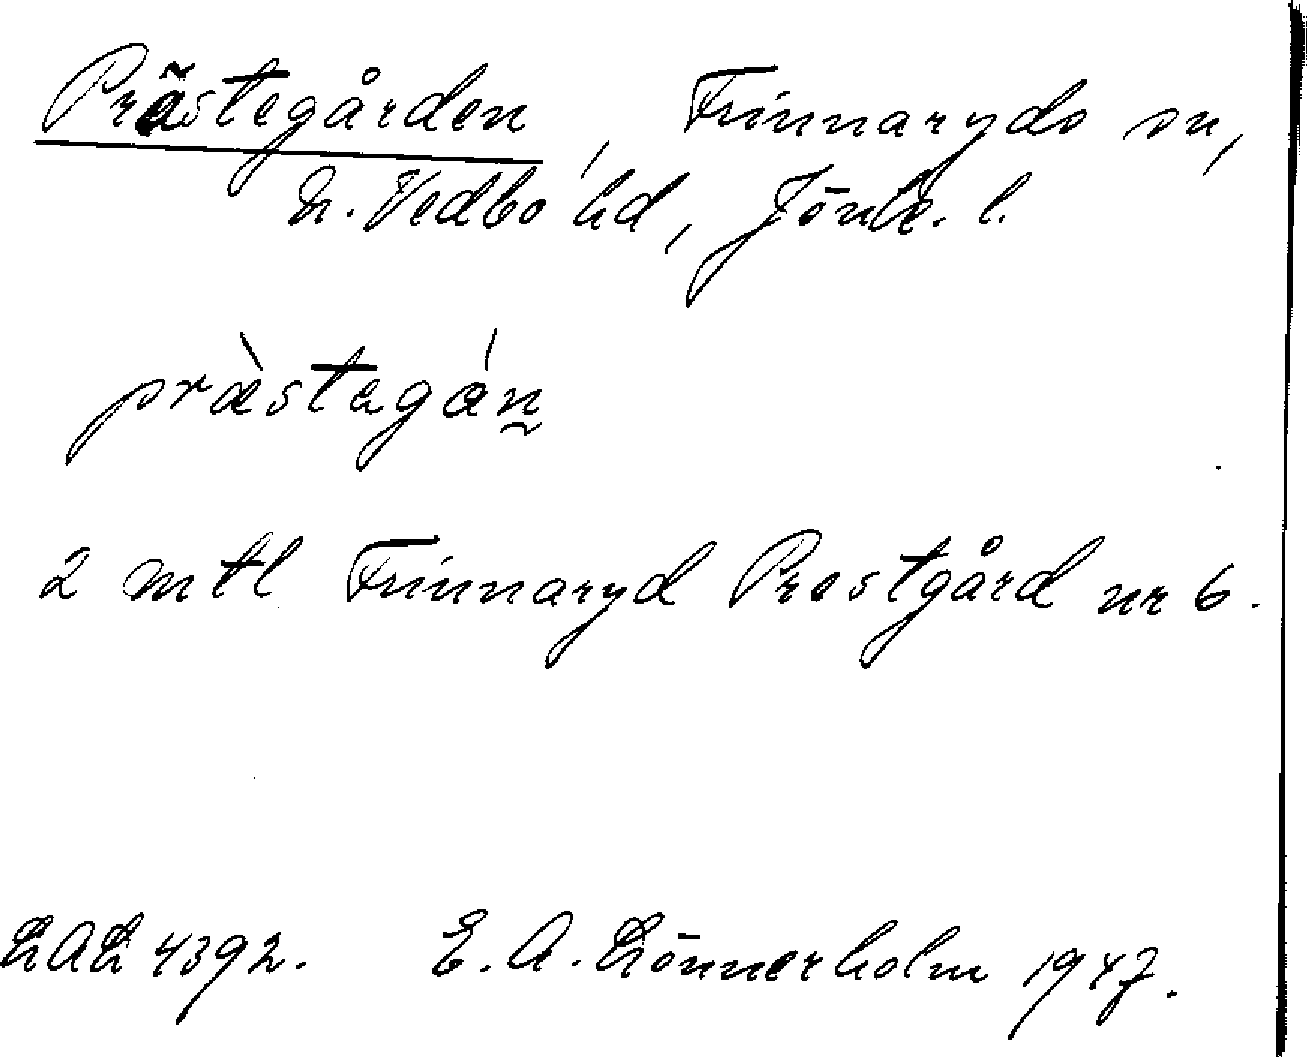 Prästegården, Frinnaryds sn,
N. Vedbo hd, Jönk. l.
prästegán
2 mtl Frinnaryd Prestgård nr 6.
LAL 4392. E. A. Lönnerholm 1947.